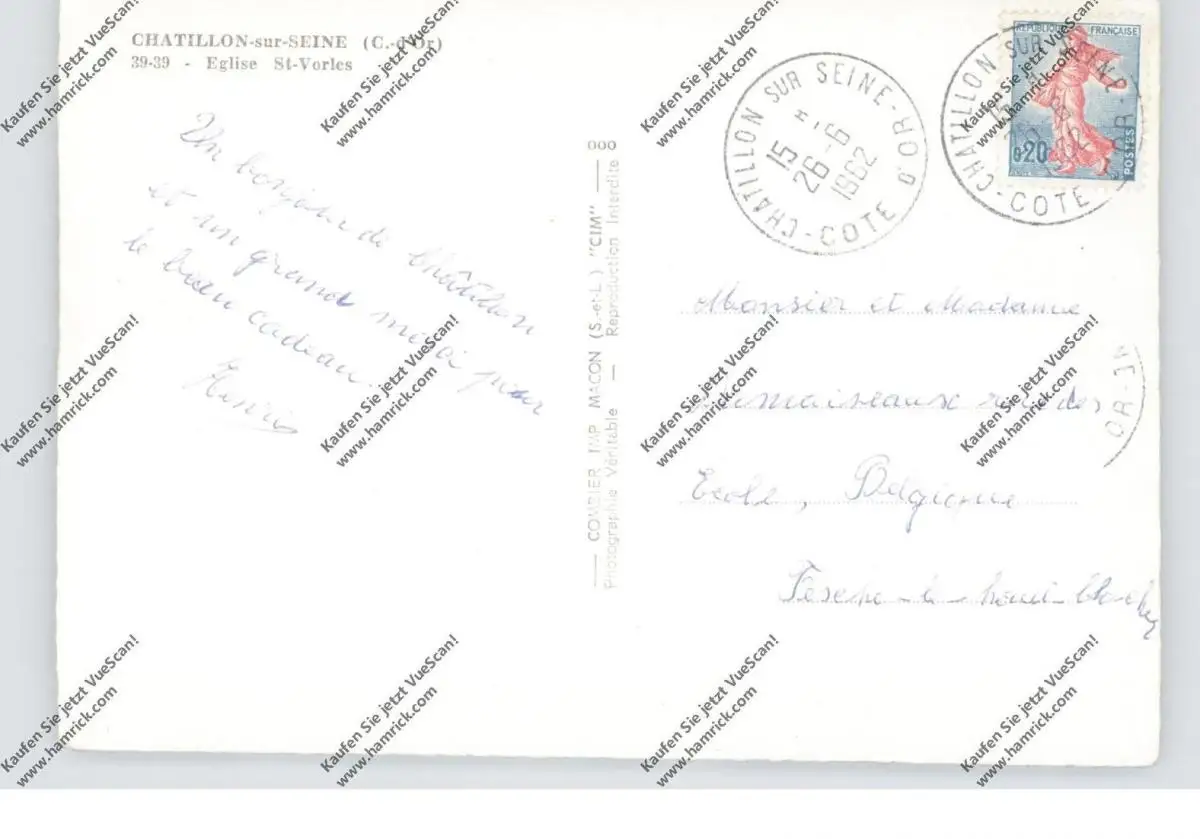 CHATILLON-sur-SEINE (C.-d'Or)
39-39 - Eglise St-Vorles
Un bonjour de Châtillon
et un grand merci pour
le beau cadeau.
COMBIER IMP. MACON (S.-et-L.) "CIM"
Photographie Véritable — Reproduction Interdite
REPUBLIQUE FRANÇAISE
0,20
POSTES
CHATILLON SUR SEINE - COTE D'OR
15 H
26-6
1962
CHATILLON SUR SEINE - COTE D'OR
Monsier et Madame
rue des
Ecole, Belgique
Kaufen Sie jetzt VueScan!
www.hamrick.com
Kaufen Sie jetzt VueScan!
www.hamrick.com
Kaufen Sie jetzt VueScan!
www.hamrick.com
Kaufen Sie jetzt VueScan!
www.hamrick.com
Kaufen Sie jetzt VueScan!
www.hamrick.com
Kaufen Sie jetzt VueScan!
www.hamrick.com
Kaufen Sie jetzt VueScan!
www.hamrick.com
Kaufen Sie jetzt VueScan!
www.hamrick.com
Kaufen Sie jetzt VueScan!
www.hamrick.com
Kaufen Sie jetzt VueScan!
www.hamrick.com
Kaufen Sie jetzt VueScan!
www.hamrick.com
Kaufen Sie jetzt VueScan!
www.hamrick.com